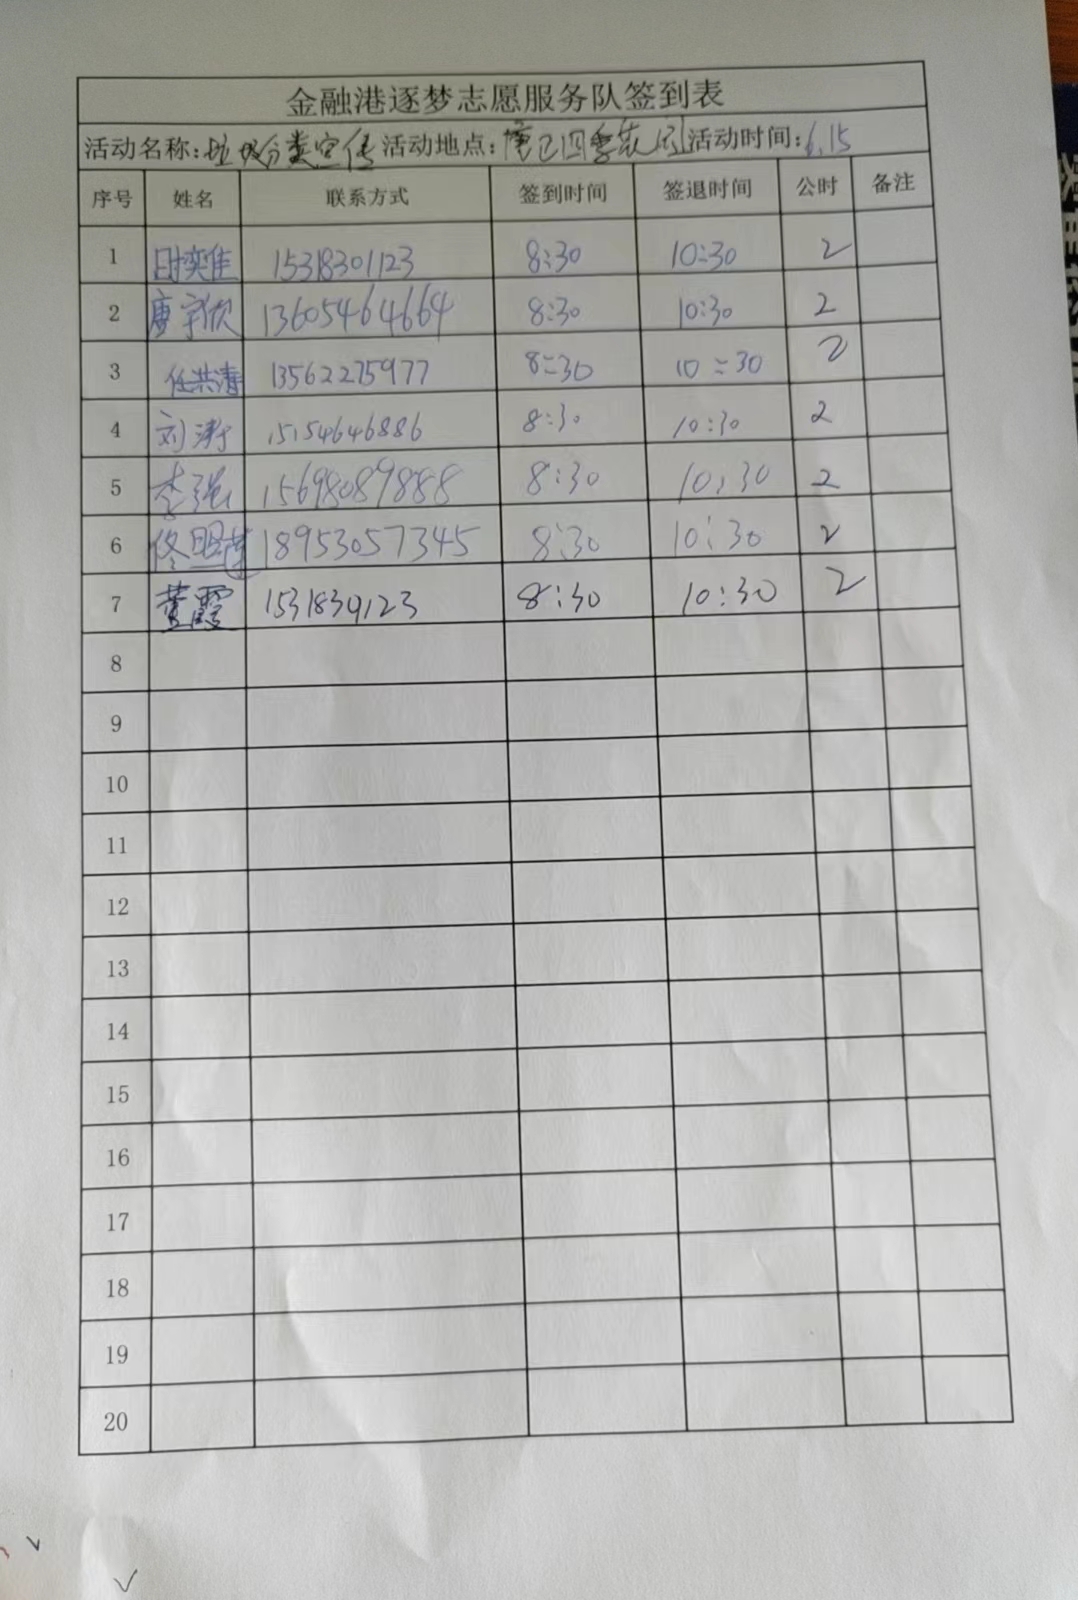 金融港逐梦志愿服务队签到表
活动名称:垃圾分类宣传 活动地点:唐己四季花园 活动时间:6.15
序号 姓名 联系方式 签到时间 签退时间 公时 备注
1 时奕佳 15318301123 8:30 10:30 2
2 唐宇欣 13605464664 8:30 10:30 2
3 任洪涛 13562275977 8:30 10:30 2
4 刘涛 15154646886 8:30 10:30 2
5 李强 15698089888 8:30 10:30 2
6 佟照莲 18953057345 8:30 10:30 2
7 董霞 1531830123 8:30 10:30 2
8
9
10
11
12
13
14
15
16
17
18
19
20